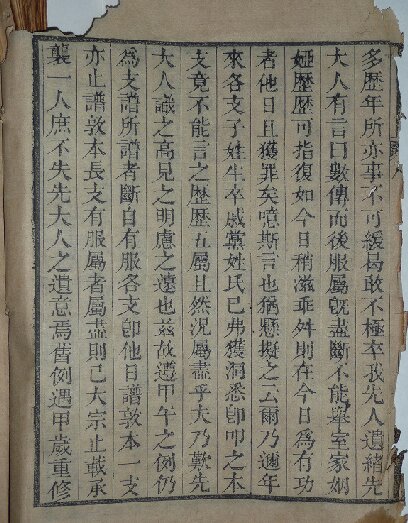 多歷年所亦事不可緩曷敢不極卒我先人遺緒先
大人有言曰數傳而後服屬旣盡斷不能舉室家姻
婭歷歷可指復如今日稍滋乖舛則在今日為有功
者他日且獲罪矣噫斯言也猶懸擬之云爾乃週年
來各支子姓生卒戚黨姓氏已弗獲洞悉卽叩之本
支竟不能言之歷歷五屬且然況屬盡乎夫乃歎先
大人識之高見之明慮之遠也兹故遵甲午之例仍
為支譜所譜者斷自有服各支卽他日譜敦本一支
亦止譜敦本長支有服屬者屬盡則已大宗止載承
襲一人庶不失先大人之遺意焉舊例遇甲歲重修